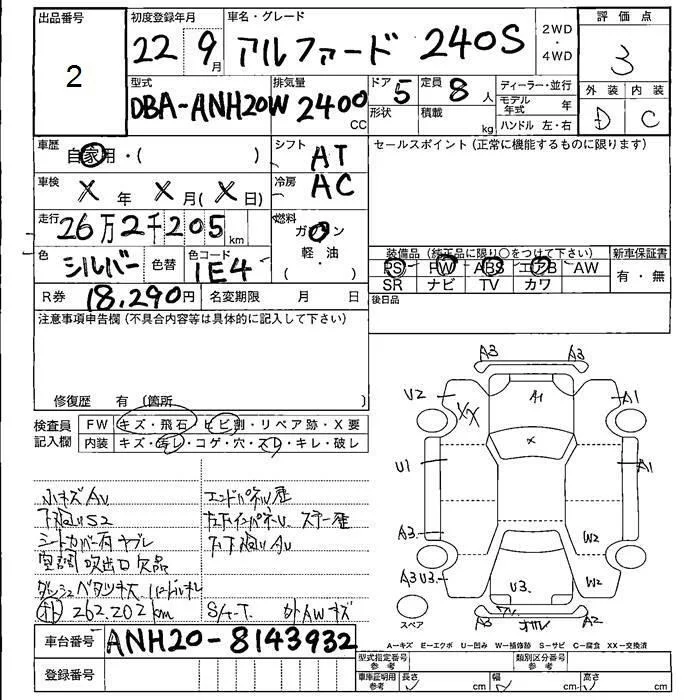 出品番号
2
初度登録年月
22 9月
車名・グレード
アルファード 240S
2WD
・
4WD
評価点
3
型式
DBA-ANH20W
排気量
2400
CC
ドア
5
定員
8人
形状
積載
kg
ディーラー・並行
モデル年式 年
ハンドル 左・右
外装 内装
D C
車歴
自家用・( )
シフト
AT
セールスポイント(正常に機能するものに限ります)
車検
X年 X月(X日)
冷房
AC
走行
26万2千205km
燃料
ガソリン
軽・油
( )
色
シルバー
色替
色コード
1E4
装備品(純正品に限り○をつけて下さい)
新車保証書
PS PW ABS エアB AW
SR ナビ TV カワ
有・無
R券
18,290円
名変期限 月 日
後日品
注意事項申告欄(不具合内容等は具体的に記入して下さい)
修復歴 有 (箇所
検査員記入欄
FW キズ・飛石・ヒビ割・リペア跡・X要
内装 キズ・汚レ・コゲ・穴・スレ・キレ・破レ
小キズAU
下廻りS2
シートカバー有 ヤブレ
空調吹出口欠品
262,202km
S/A-T.
外AWキズ
エンドパネル歴
下下廻りAU
A3 A3
U2 XX A1 A1
U1 X A1
A3 W2
A3 U3 U3 W2
A3 A2
スペア
A-キズ E-エクボ U-凹み W-補修跡 S-サビ C-腐食 XX-交換済
車台番号
ANH20-8143932
登録番号
型式指定番号
参考
類別区分番号
参考
車庫証明用
参考
長さ cm
幅 cm
高さ cm